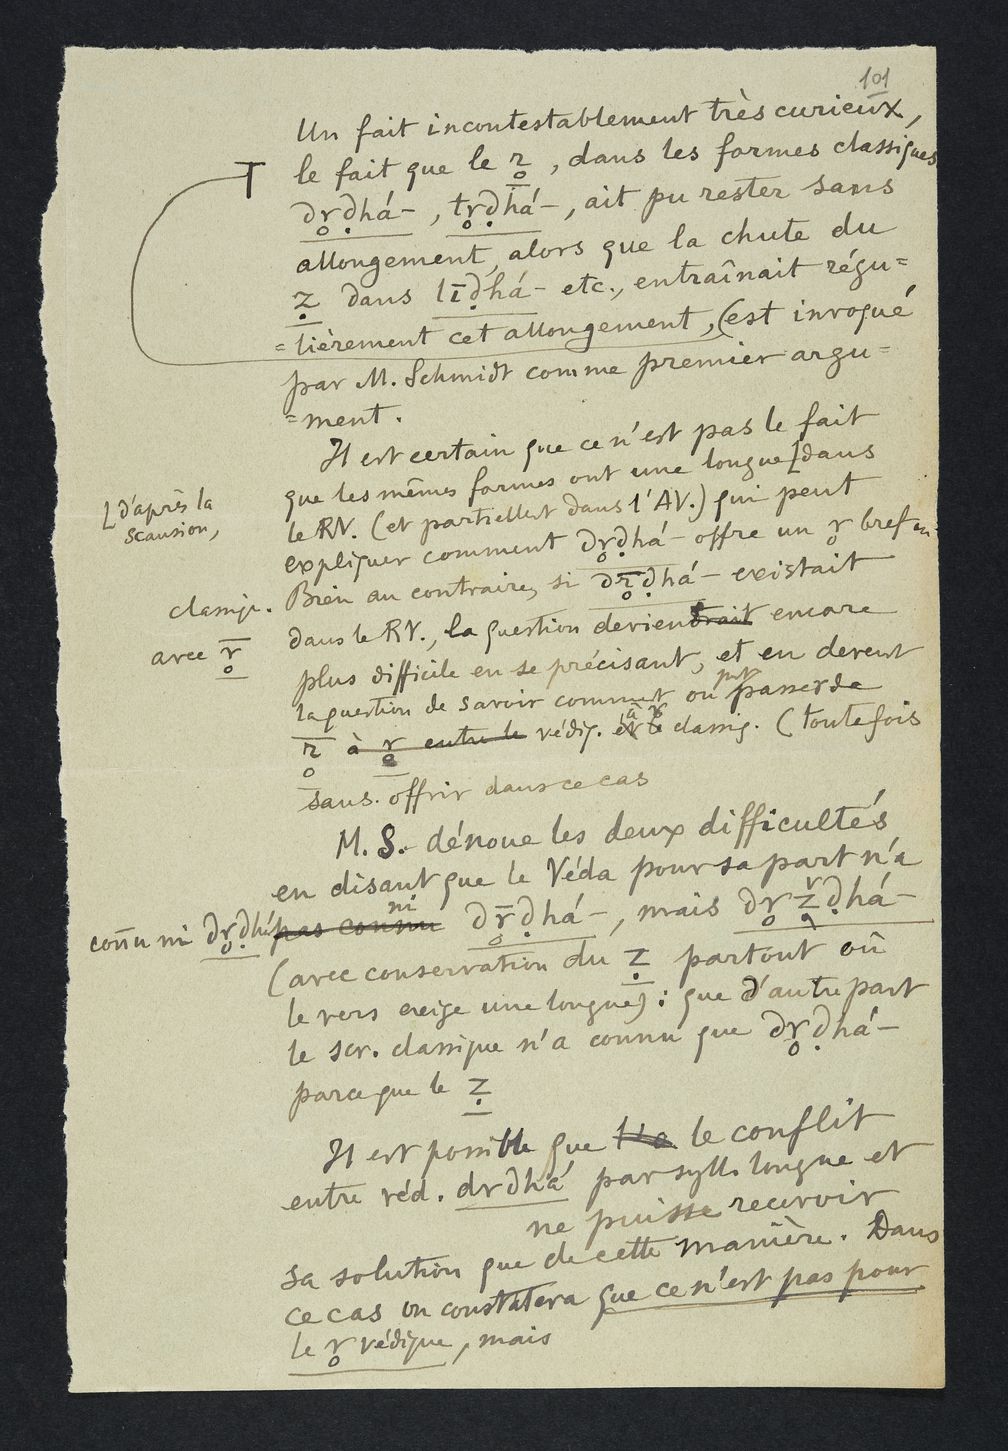 101
Un fait incontestablement très curieux,
le fait que le r̥, dans les formes classiques
dr̥ḍhá-, tr̥ḍhá-, ait pu rester sans
allongement, alors que la chute du
ẓ dans līḍhá- etc., entraînait régu=
=lièrement cet allongement, (est invoqué
par M. Schmidt comme premier argu=
=ment.
Il est certain que ce n'est pas le fait
que les mêmes formes ont une longue [dans
[d'après la
scansion,
le RV. (et partiellemt dans l'AV.) qui peut
expliquer comment dr̥ḍhá- offre un r̥ bref en
classiq. Bien au contraire, si dr̥̄ḍhá- existait
avec r̥̄
dans le RV., la question deviendrait encore
plus difficile en se précisant, et en devent
la question de savoir commet on put passer de
r̥̄ à r̥ entre le védiq. et le à r̥ classiq. (toutefois
sans offrir dans ce cas
M. S. dénoue les deux difficultés
en disant que le Véda pour sa part n'a
connu ni dr̥ḍhá pas connu ni dr̥̄ḍhá-, mais dr̥ẓḍhá-
(avec conservation du ẓ partout où
le vers exige une longue) : que d'autre part
le scr. classique n'a connu que dr̥ḍhá-
parce que le ẓ
Il est possible que le conflit
entre véd. drdhá par syll. longue et
ne puisse recevoir
sa solution que de cette manière. Dans
ce cas on constatera que ce n'est pas pour
le r̥ védique, mais